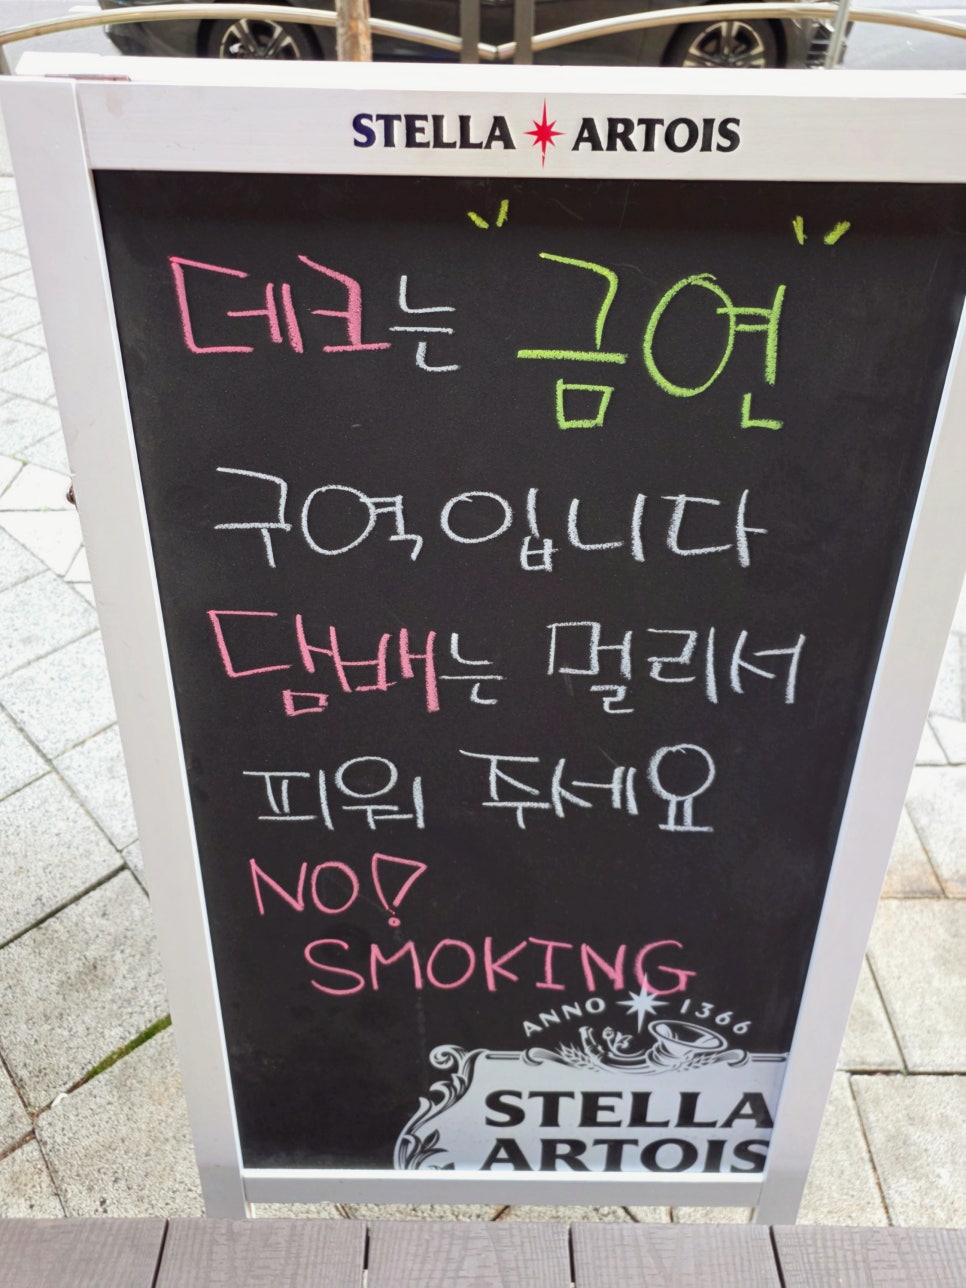 STELLA ARTOIS
데크는 "금연"
구역입니다
담배는 멀리서
피워 주세요
NO!
SMOKING
ANNO 1366
STELLA
ARTOIS